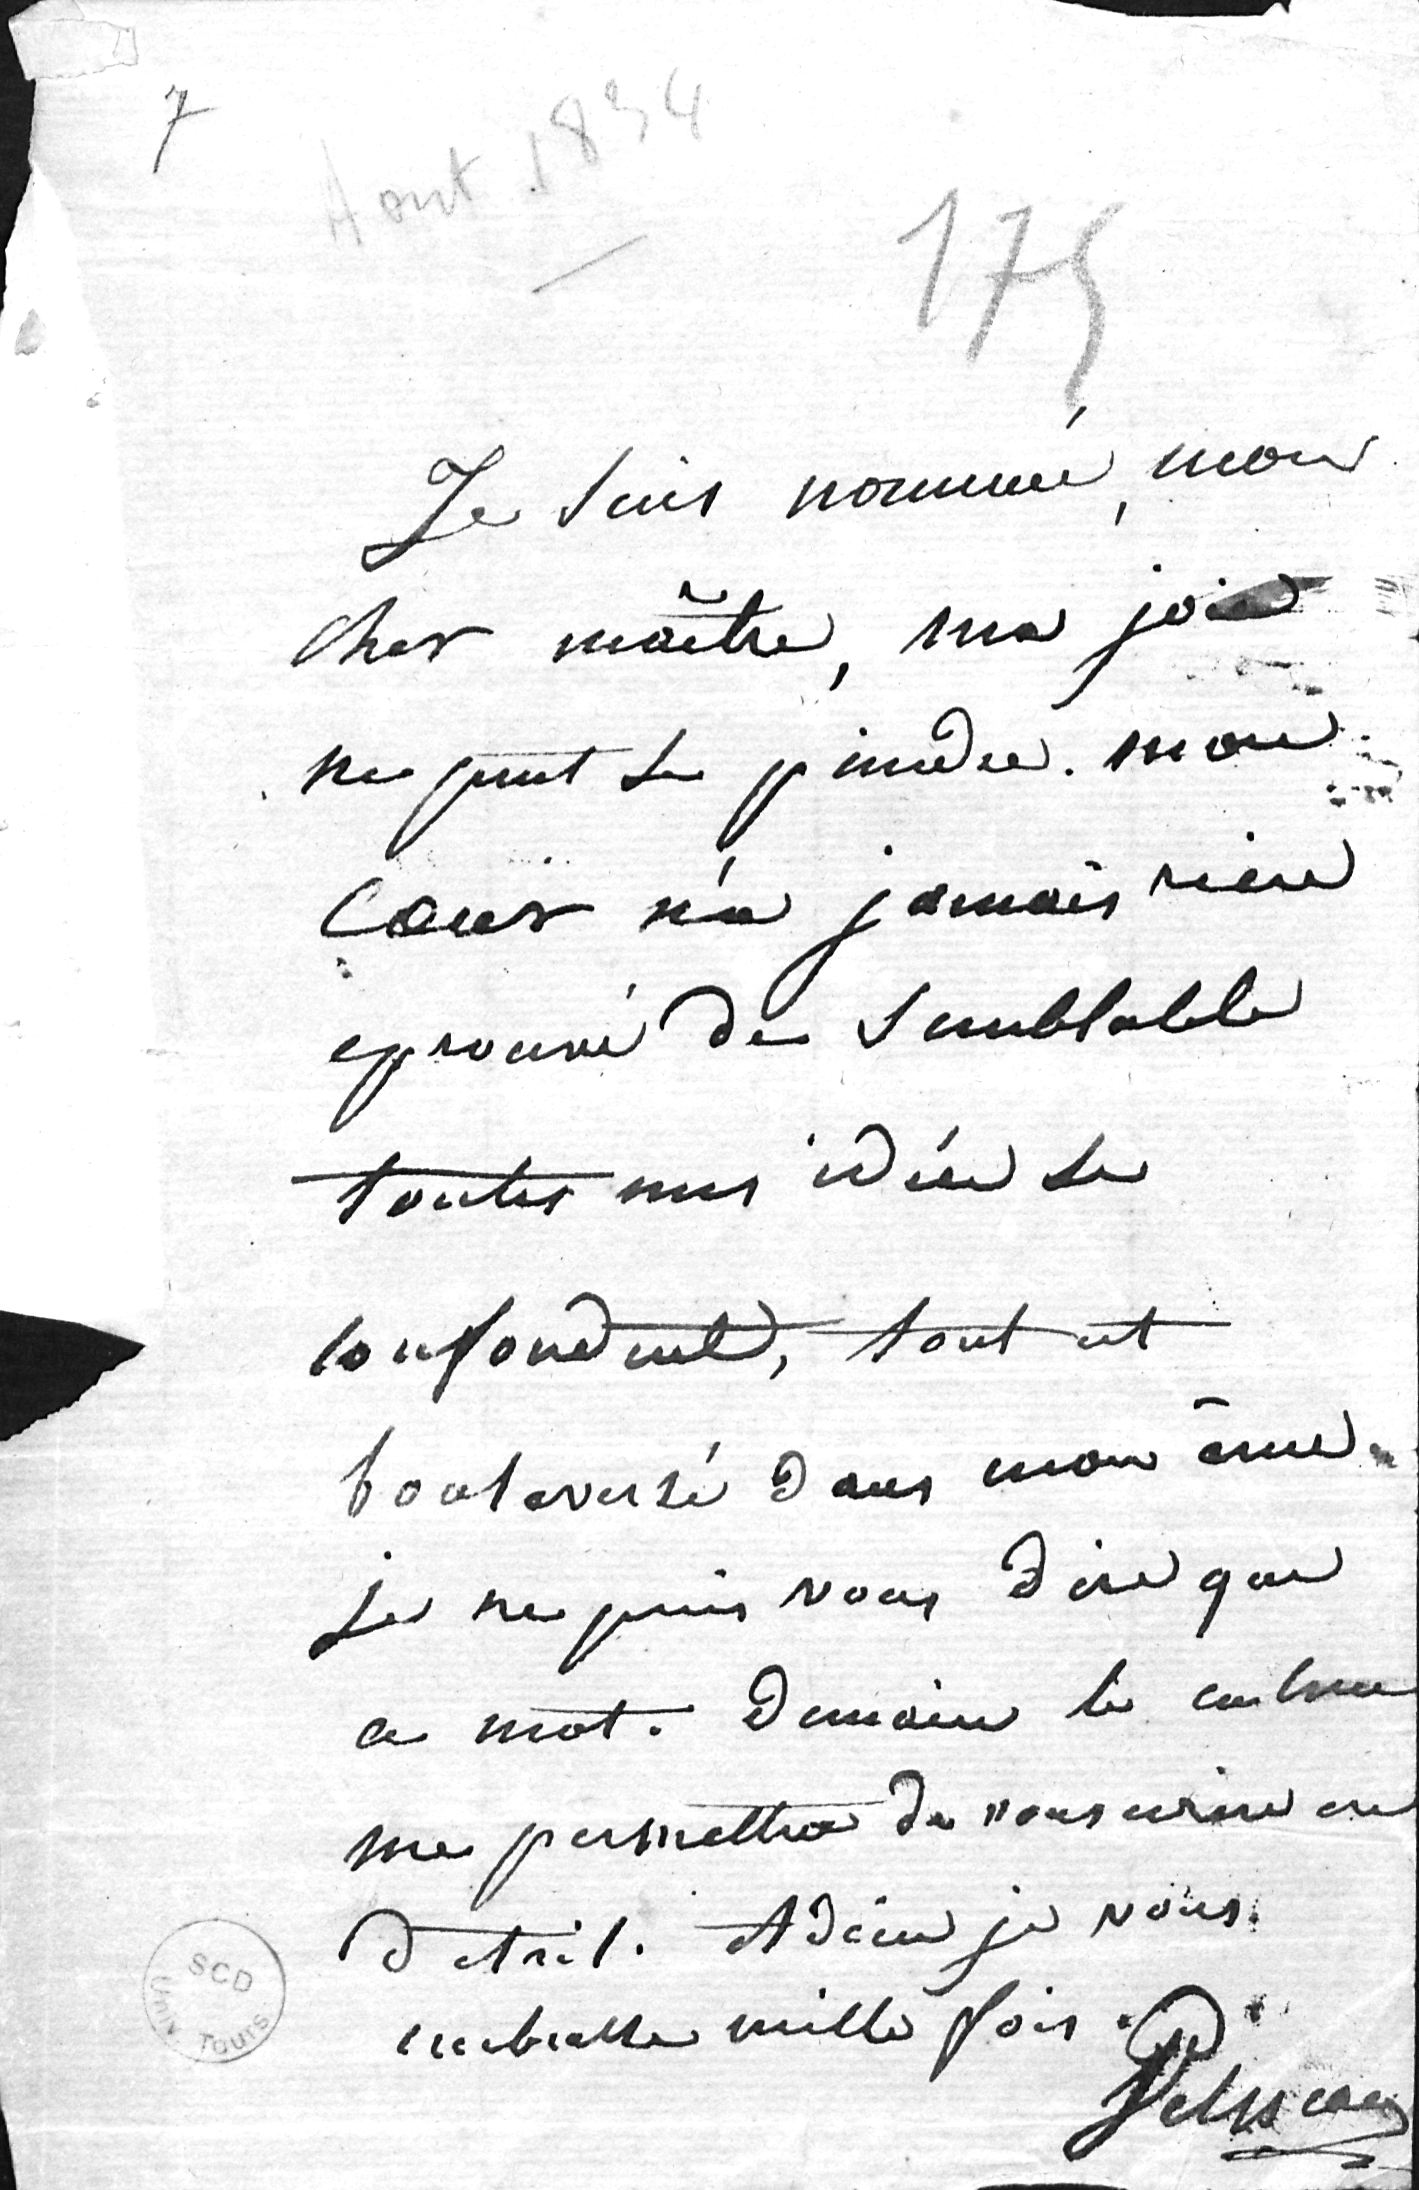 7
Aout 1834
175
Je suis nommé, mon
cher maître, ma joie
ne peut se peindre. mon
Cœur n'a jamais rien
eprouvé de semblable
toutes mes idées se
confondent, tout est
bouleversé dans mon âme.
je ne puis vous dire que
ce mot. Demain le calme
me permettra de vous écrire en
détail. Adieu je vous
embrasse mille fois.
Velpeau
SCD
Univ Tours